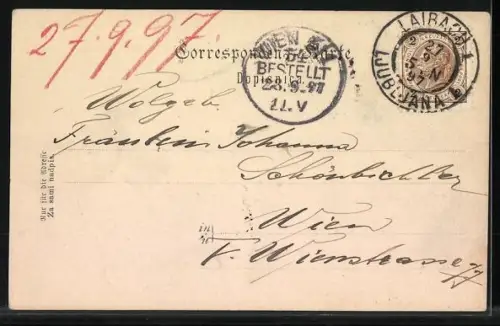 27.9.97.
Correspondenz-Karte
Dopisnica
WIEN
BESTELLT
28.9.97
11.V
LAIBACH 1
27
9
97
LJUBLJANA 1
Wolgeb.
Fräulein Johanna
Schönbichler
in
Wien
V. Wienstrasse 77
Nur für die Adresse
Za sami naslov